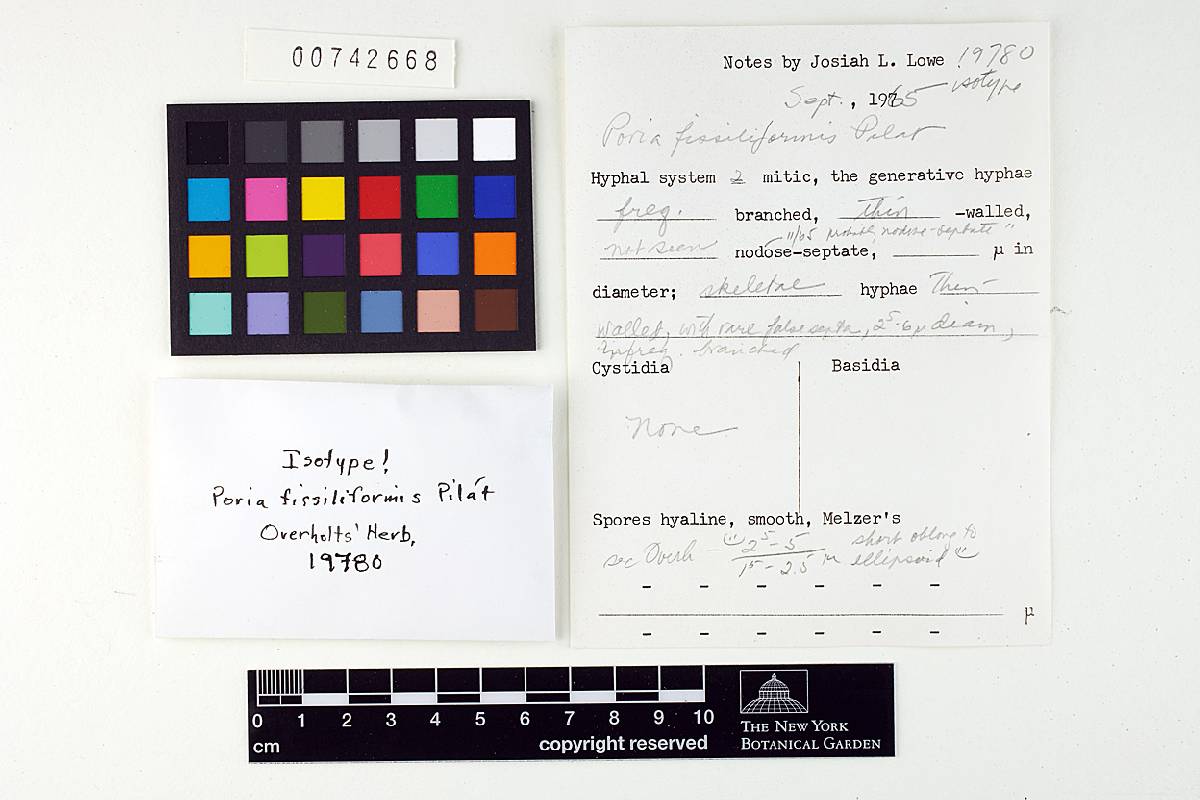 00742668
Notes by Josiah L. Lowe 19780
Sept., 1965 isotype
Poria fissiliformis Pilat
Hyphal system 2 mitic, the generative hyphae
freq. branched, thin -walled,
"/65 probably nodose-septate"
not seen nodose-septate, μ in
diameter; skeletal hyphae Thin-
walled, with rare false septa, 2⁵-6μ diam,
infreq. branched
Cystidia Basidia
None
Spores hyaline, smooth, Melzer's
sec Overh " 2⁵-5 short oblong to
1⁵-2.5 μ ellipsoid "
- - - - - -
μ
- - - - - -
Isotype!
Poria fissiliformis Pilát
Overholts' Herb,
19780
0 1 2 3 4 5 6 7 8 9 10
cm
copyright reserved
THE NEW YORK
BOTANICAL GARDEN